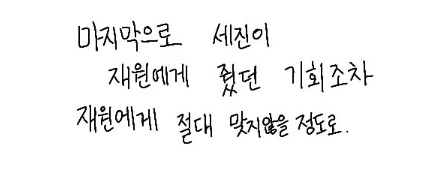 마지막으로 세진이
재원에게 줬던 기회조차
재원에게 절대 맞지않을 정도로.